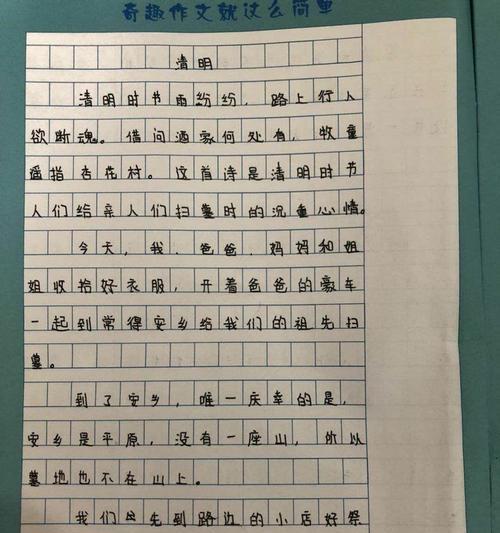 奇趣作文就这么简单
清明
清明时节雨纷纷，路上行人
欲断魂。借问酒家何处有，牧童
遥指杏花村。这首诗是清明时节
人们给亲人们扫墓时的沉重心情。
今天，我、爸爸、妈妈和姐
姐收拾好衣服，开着爸爸的豪车
一起到常德安乡给我们的祖先扫
墓。
到了安乡，唯一庆幸的是，
安乡是平原，没有一座山，所以
墓地也不在山上。
我们先到路边的小店好祭